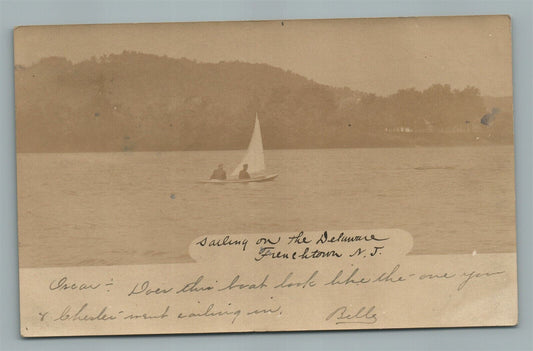 Sailing on the Delaware
Frenchtown N. J.
Oscar:- Does this boat look like the one you
& Chester went sailing in. Billy